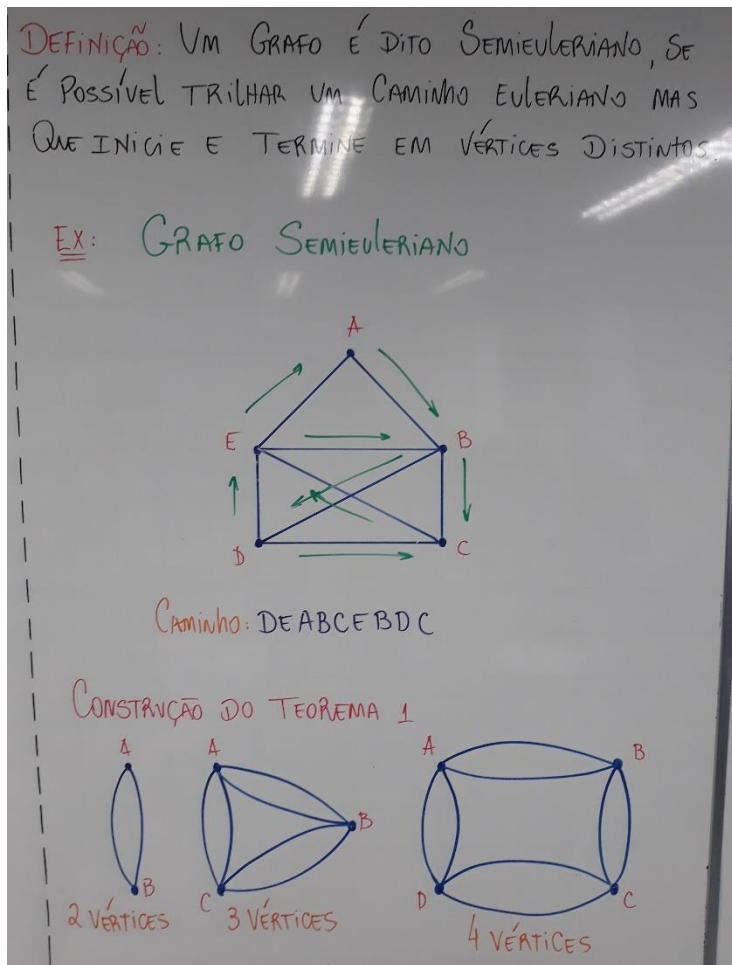 DEFINIÇÃO: UM GRAFO É DITO SEMIEULERIANO, SE
É POSSÍVEL TRILHAR UM CAMINHO EULERIANO MAS
QUE INICIE E TERMINE EM VÉRTICES DISTINTOS.
EX: GRAFO SEMIEULERIANO
A
E B
D C
CAMINHO: DEABCEBDC
CONSTRUÇÃO DO TEOREMA 1
A A A B
B B
C D C
2 VÉRTICES 3 VÉRTICES 4 VÉRTICES